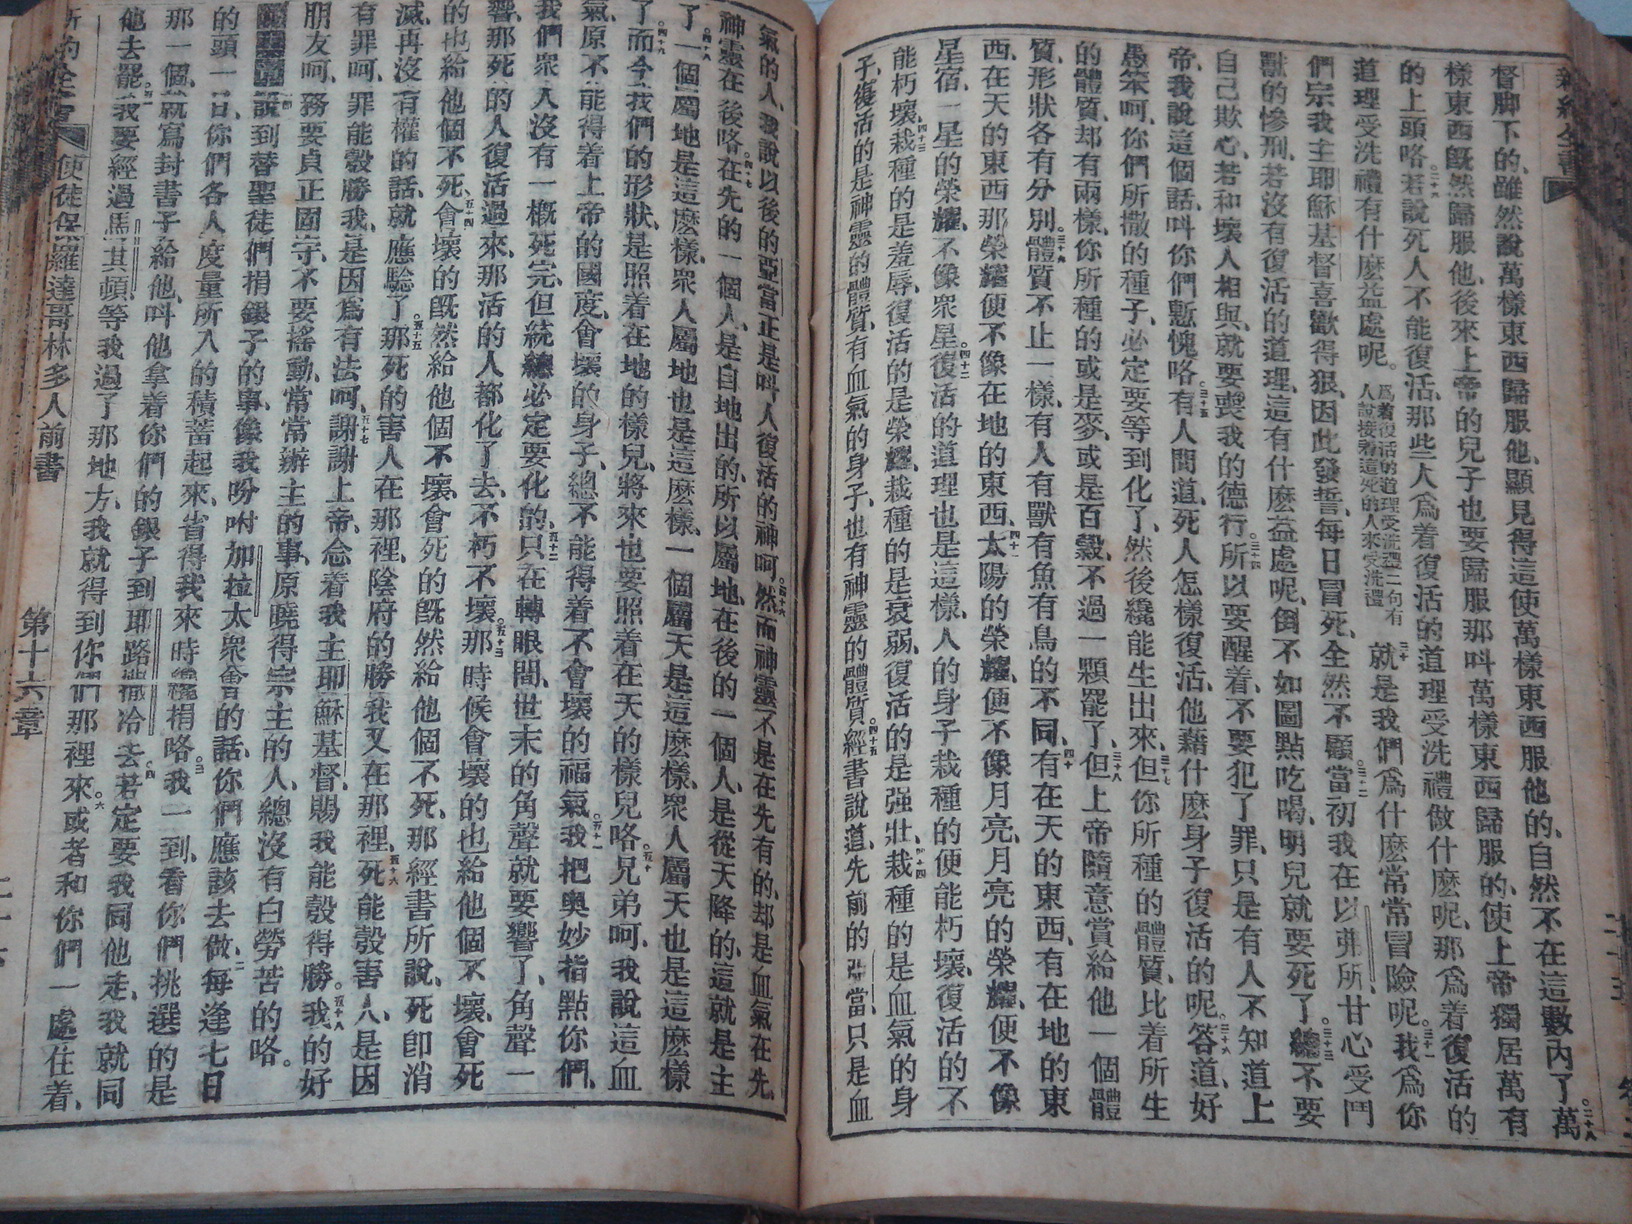 新約全書
督脚下的、雖然說萬樣東西歸服他、顯見得這使萬樣東西服他的、自然不在這數內了。二十八萬
樣東西旣然歸服他、後來上帝的兒子也要歸服那叫萬樣東西歸服的、使上帝獨居萬有
的上頭咯。二十九若說死人不能復活、那些人爲着復活的道理受洗禮做什麽呢、那爲着復活的
道理受洗禮有什麽益處呢。爲着復活的道理受洗禮二句有人說接着這死的人來受洗禮三十就是我們爲什麽常常冒險呢。三十一我爲你
們宗我主耶穌基督喜歡得狠、因此發誓、每日冒死、全然不顧。三十二當初我在以弗所、甘心受鬥
獸的慘刑、若沒有復活的道理、這有什麽益處呢、倒不如圖點吃喝、明兒就要死了。三十三總不要
自己欺心、若和壞人相與、就要喪我的德行。三十四所以要醒着、不要犯了罪、只是有人不知道上
帝、我說這個話、叫你們慙愧咯。三十五有人問道、死人怎樣復活、他藉什麽身子復活的呢。三十六答道、好
愚笨呵、你們所撒的種子、必定要等到化了、然後纔能生出來。三十七但你所種的體質、比着所生
的體質、却有兩樣、你所種的或是麥、或是百穀、不過一顆罷了。三十八但上帝隨意賞給他一個體
質、形狀各有分別。三十九體質不止一樣、有人有獸有魚有鳥的不同。四十有在天的東西、有在地的東
西、在天的東西那榮耀、便不像在地的東西。四十一太陽的榮耀、便不像月亮、月亮的榮耀、便不像
星宿、一星的榮耀、不像衆星。四十二復活的道理也是這樣、人的身子栽種的便能朽壞、復活的不
能朽壞。四十三栽種的是羞辱、復活的是榮耀、栽種的是衰弱、復活的是强壯。四十四栽種的是血氣的身
子、復活的是神靈的體質、有血氣的身子、也有神靈的體質。四十五經書說道、先前的亞當、只是血
氣的人、我說以後的亞當正是叫人復活的神呵。四十六然而神靈不是在先有的、却是血氣在先、
神靈在後咯。四十七在先的一個人、是自地出的、所以屬地、在後的一個人、是從天降的、這就是主
了。四十八一個屬地是這麽樣、衆人屬地也是這麽樣、一個屬天是這麽樣、衆人屬天也是這麽樣
了。四十九而今我們的形狀、是照着在地的樣兒、將來也要照着在天的樣兒咯。五十兄弟呵、我說這血
氣、原不能得着上帝的國度、會壞的身子、總不能得着不會壞的福氣。五十一我把奧妙指點你們、
我們衆人沒有一概死完、但統總必定要化的。五十二只在轉眼間、世末的角聲就要響了、角聲一
響、那死的人復活過來、那活的人都化了去、不朽不壞。五十三那時候會壞的也給他個不壞、會死
的也給他個不死。五十四會壞的旣然給他個不壞、會死的旣然給他個不死、那經書所說、死卽消
滅、再沒有權的話、就應驗了。五十五那死的害人在那裡、陰府的勝我又在那裡。五十六死能彀害人、是因
有罪呵、罪能彀勝我、是因爲有法呵。五十七謝謝上帝、念着我主耶穌基督、賜我能彀得勝。五十八我的好
朋友呵、務要貞正固守、不要搖動、常常辦主的事、原曉得宗主的人、總沒有白勞苦的咯。
說到替聖徒們捐銀子的事、像我吩咐加拉太衆會的話、你們應該去做。二每逢七日
的頭一日、你們各人度量所入的積蓄起來、省得我來時纔捐咯。三我一到、看你們挑選的是
那一個、就寫封書子給他、叫他拿着你們的銀子到耶路撒冷去。四若定要我同他走、我就同
他去罷。五我要經過馬其頓、等我過了那地方、我就得到你們那裡來。六或者和你們一處住着、
使徒保羅達哥林多人前書　第十六章